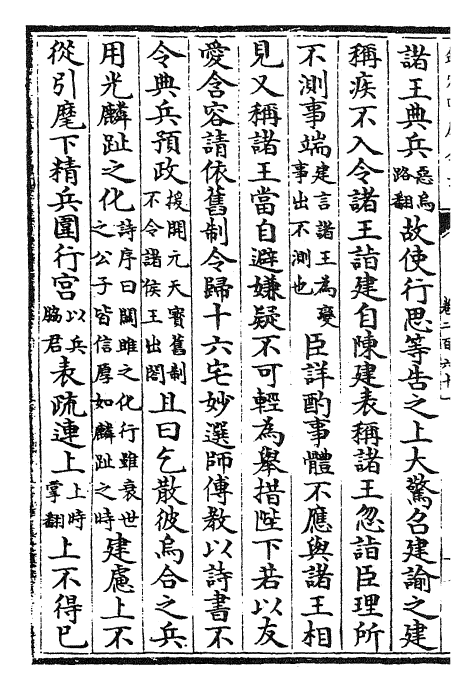 諸王典兵惡烏路翻故使行思等告之上大驚召建諭之建
稱疾不入令諸王詣建自陳建表稱諸王忽詣臣理所
不測事端建言諸王為變事出不測也臣詳酌事體不應與諸王相
見又稱諸王當自避嫌疑不可輕為舉措陛下若以友
愛含容請依舊制令歸十六宅妙選師傅教以詩書不
令典兵預政援開元天寶舊制不令諸侯王出閤且曰乞散彼烏合之兵
用光麟趾之化詩序曰關雎之化行雖衰世之公子皆信厚如麟趾之時建慮上不
從引麾下精兵圍行宫以兵脇君表疏連上上時掌翻上不得已
卷二百六十一